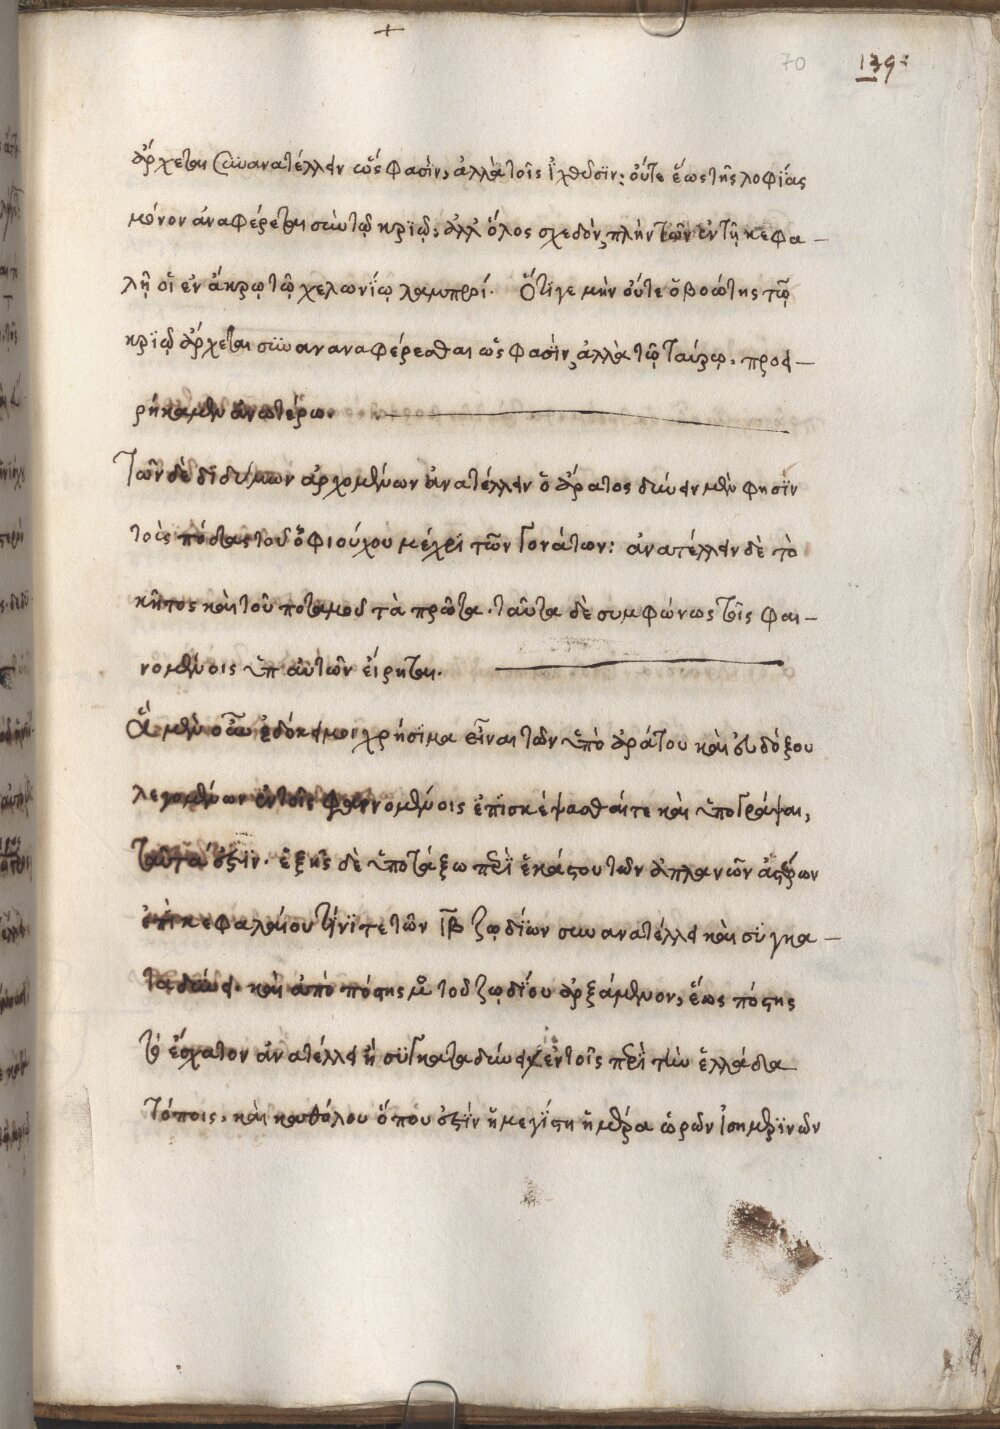 +
70 139:
ἄρχεται συνανατέλλειν ὥς φασιν, ἀλλὰ τοῖς ἰχθύσϊν: οὔτε ἕως τῆς λοφίας
μόνον ἀναφέρεται σὺν τῷ κριῷ, ἀλλ' ὅλος σχεδὸν, πλὴν τῶν ἐν τῇ κεφα-
λῇ οἱ ἐν ἄκρῳ τῷ χελωνίῳ λαμπροί. Ὅτι γε μὴν οὔτε ὁ βοώτης τῷ
κριῷ ἄρχεται συναναφέρεσθαι ὥς φασϊν, ἀλλὰ τῷ ταύρῳ. προει-
ρήκαμεν ἀνωτέρω.
Τῶν δὲ διδύμων ἀρχομένων ἀνατέλλειν ὁ ἄρατος δύνειν μὲν φησὶν
τοὺς πόδας τοῦ ὀφιούχου μέχρι τῶν γονάτων: ἀνατέλλειν δὲ τὸ
κῆτος καὶ τοῦ ποταμοῦ τὰ πρῶτα. ταῦτα δὲ συμφώνως τοῖς φαι-
νομένοις ὑπ αὐτῶν εἴρηται.
Ἃ μὲν οὖν ἐδόκει μοι χρήσιμα εἶναι τῶν ὑπὸ ἀράτου καὶ εὐδόξου
λεγομένων ἐν τοῖς φαινομένοις ἐπισκέψασθαί τε καὶ ὑπογράψαι,
ταῦτά ἐστϊν. ἑξῆς δὲ ὑποτάξω περὶ ἑκάστου τῶν ἀπλανῶν ἄστρων
ἐπὶ κεφαλαίου τίνϊ τε τῶν ιβ ζῳδίων συνανατέλλει καὶ συγκα-
ταδύνει. καὶ ἀπὸ πόστης μο τοῦ ζῳδίου ἀρξάμενον, ἕως πόστης
τὸ ἔσχατον ἀνατέλλει ἢ συγκαταδύνει ἐν τοῖς περὶ τὴν ἑλλάδα
τόποις. καὶ καθόλου ὅπου ἐστὶν ἡ μεγίστη ἡμέρα ὡρῶν ἰσημερινῶν